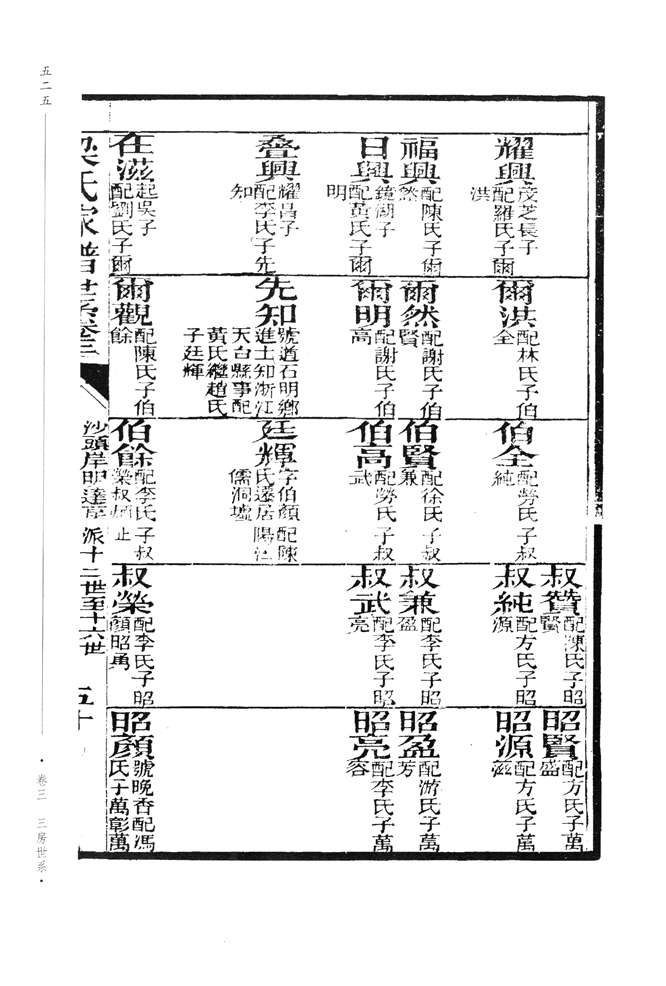 耀興
茂芝長子
配羅氏子爾
洪
福興
配陳氏子爾
然
日興
鏡湖子
配黃氏子爾
明
疊興
耀昌子
配李氏子先
知
在滋
起吳子
配劉氏子爾
爾洪
配林氏子伯
全
爾然
配謝氏子伯
賢
爾明
配謝氏子伯
高
先知
號道石明鄉
進士知浙江
天台縣事配
黃氏繼趙氏
子廷輝
爾觀
配陳氏子伯
餘
伯全
配勞氏子叔
純
伯賢
配徐氏子叔
兼
伯高
配勞氏子叔
武
廷輝
字伯顏配陳
氏遷居陽江
儒洞墟
伯餘
配李氏子叔
榮叔 止
叔贊
配陳氏子昭
賢
叔純
配方氏子昭
源
叔兼
配李氏子昭
盈
叔武
配李氏子昭
亮
叔榮
配李氏子昭
顏昭勇
昭賢
配方氏子萬
盛
昭源
配方氏子萬
滋
昭盈
配游氏子萬
芳
昭亮
配李氏子萬
容
昭顏
號晚香配馮
氏子萬彰萬
梁氏家譜世系卷三
沙頭岸明達 派十二世至十六世
五十
五二五
·卷三 三房世系·